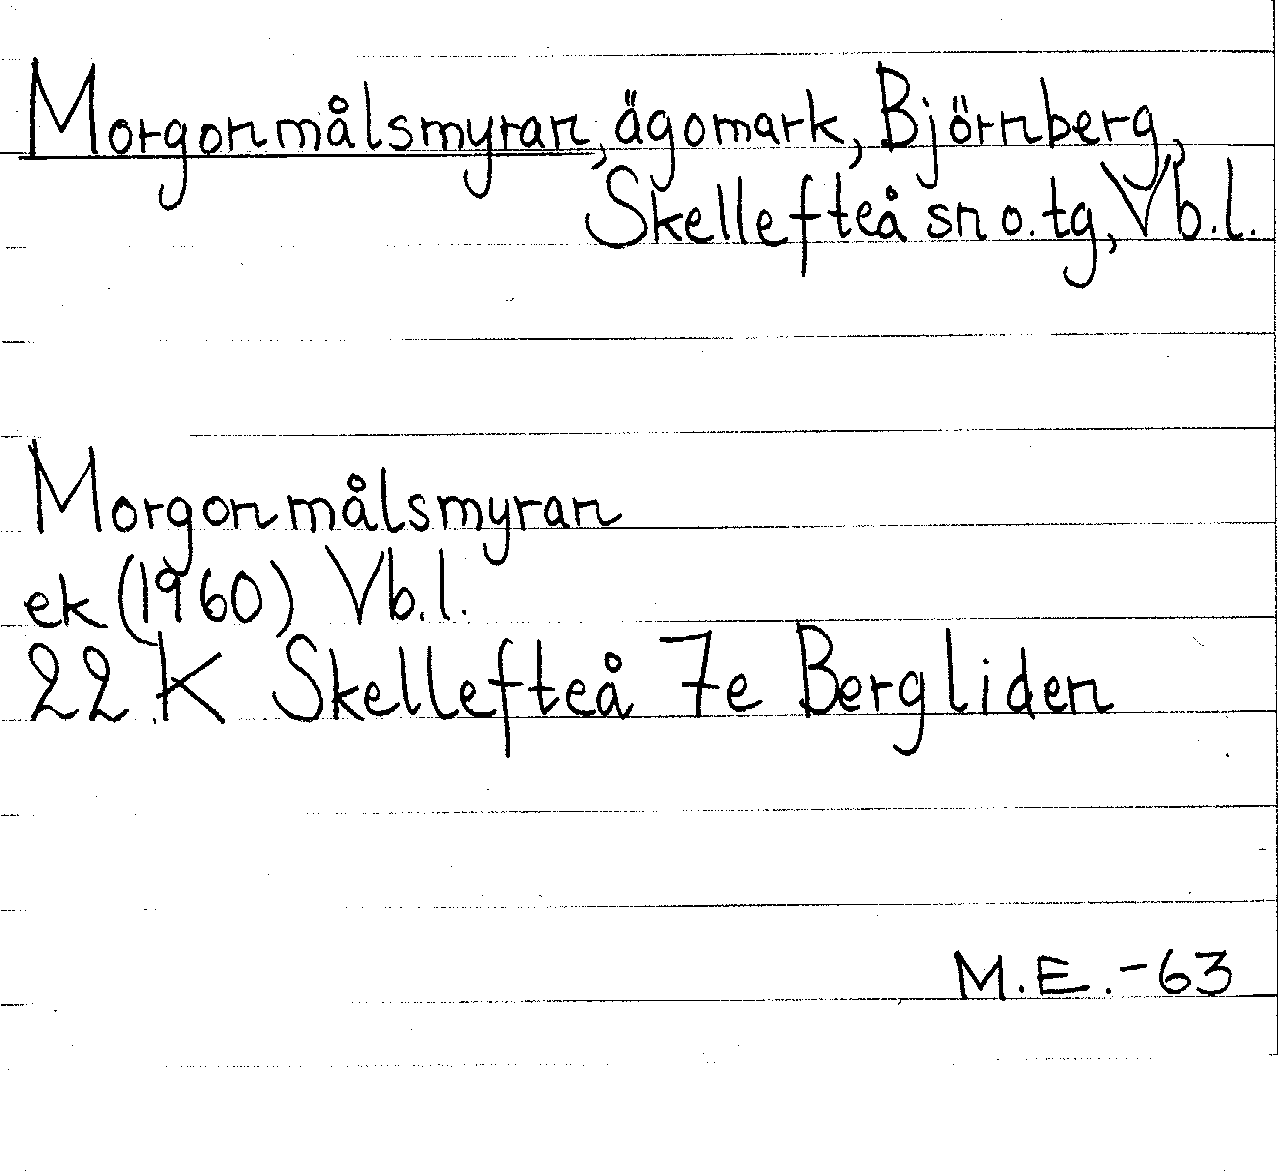 Morgonmålsmyran, ägomark, Björnberg,
Skellefteå sn o. tg, Vb.l.
Morgonmålsmyran
ek (1960) Vb.l.
22 K Skellefteå 7e Bergliden
M.E.-63